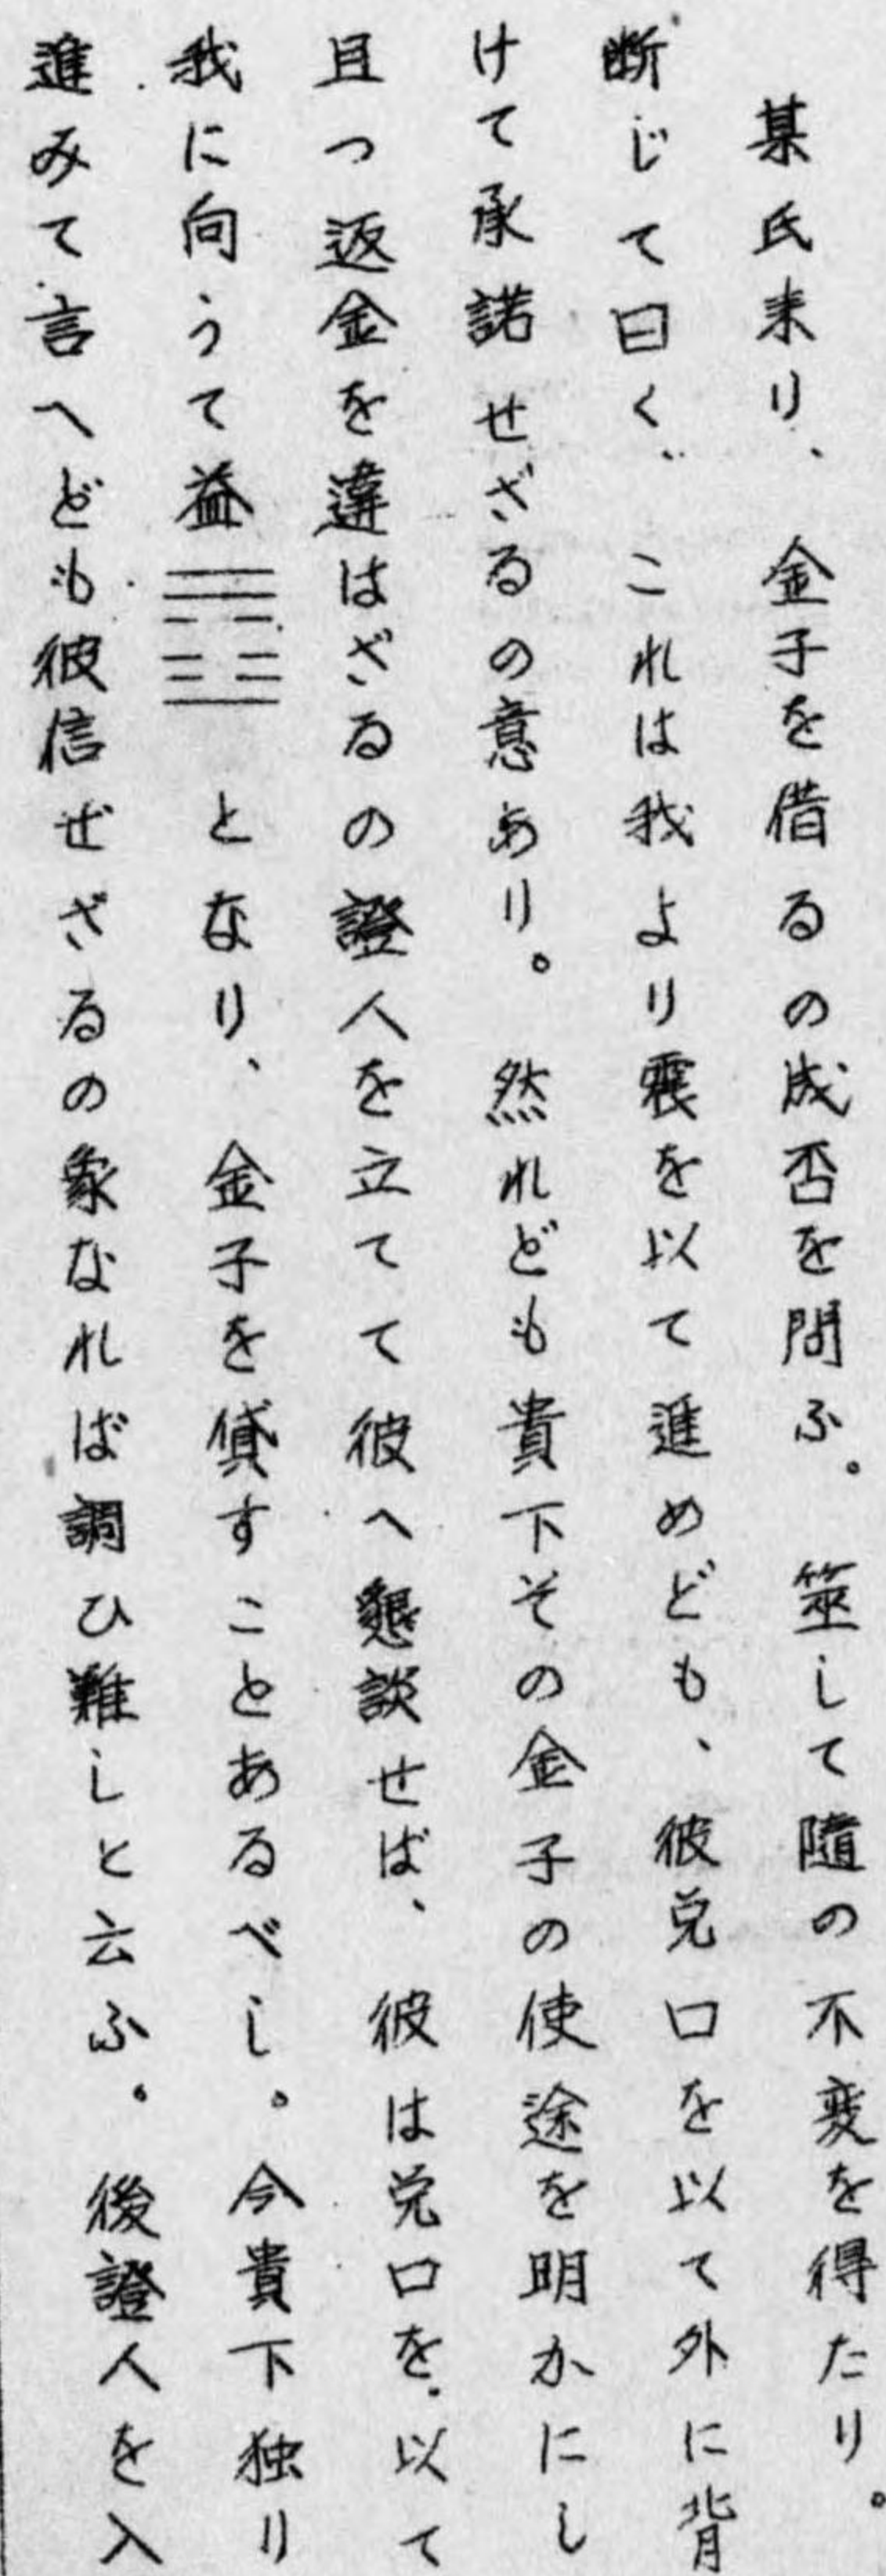 某氏来り、金子を借るの成否を問ふ。筮して隨の不変を得たり。
断じて曰く、これは我より震を以て進めども、彼兌口を以て外に背
けて承諾せざるの意あり。然れども貴下その金子の使途を明かにし
且つ返金を違はざるの證人を立てて彼へ懇談せば、彼は兌口を以て
我に向うて益䷩となり、金子を貸すことあるべし。今貴下独り
進みて言へども彼信ぜざるの象なれば調ひ難しと云ふ。後證人を入